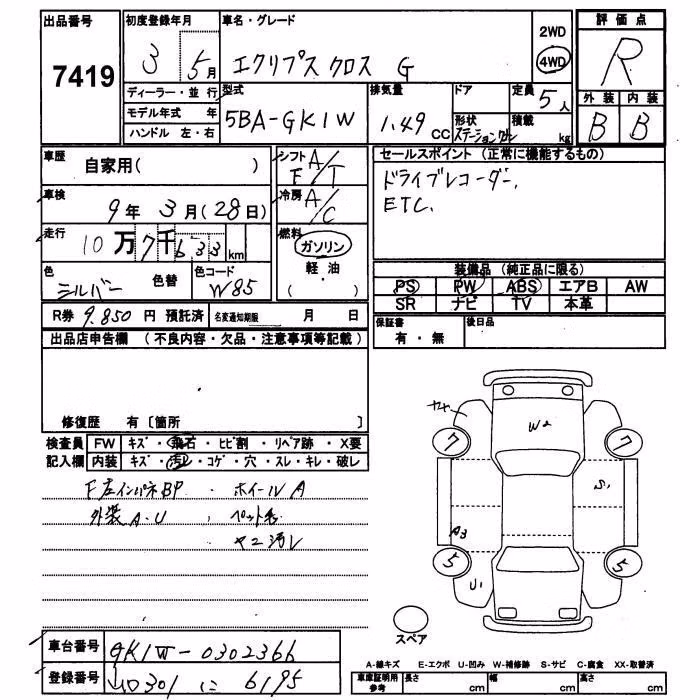 出品番号 7419
初度登録年月 3 5月
車名・グレード エクリプス クロス G
2WD 4WD
評価点 R
外装 B 内装 B
ディーラー・並行
モデル年式 年
ハンドル 左・右
型式 5BA-GK1W
排気量 1.49 CC
ドア 形状 ステーションワゴン
定員 5人 積載 kg
車歴 自家用( )
シフト F A/T
車検 9年 3月(28日)
冷房 A/C
走行 10万7千633km
燃料 ガソリン 軽油 ( )
色 シルバー 色替 色コード W85
セールスポイント (正常に機能するもの)
ドライブレコーダー、
ETC.
装備品 (純正品に限る)
PS PW ABS エアB AW
SR ナビ TV 本革
R券 9.850 円 預託済 名変通知期限 月 日
保証書 有・無 後日品
出品店申告欄 (不良内容・欠品・注意事項等記載)
修復歴 有〔箇所 〕
検査員 FW キズ・飛石・ヒビ割・リペア跡・X要
記入欄 内装 キズ・汚レ・コゲ・穴・スレ・キレ・破レ
F左インパネBP . ホイールA
外装A.U , ペット毛
ヤニ汚レ
W2
7 7
S1
A3
5 5
U1
スペア
車台番号 GK1W-0302366
A-線キズ E-エクボ U-凹み W-補修跡 S-サビ C-腐食 XX-取替済
車庫証明用参考 長さ cm 幅 cm 高さ cm